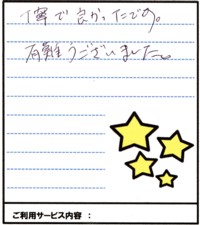 丁寧で良かったです。
有難うございました。
ご利用サービス内容：